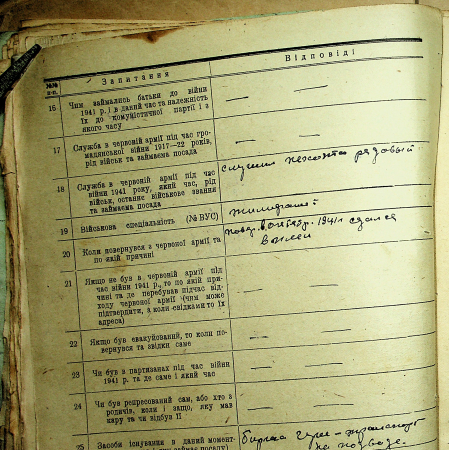 №№ п-п. Запитання Відповіді
16 Чим займались батьки до війни
1941 р.) в даний час та належність
їх до комуністичної партії і з
якого часу
— —
17 Служба в червоній армії під час гро-
мадянської війни 1917—22 років,
рід військ та займаєма посада
— —
18 Служба в червоній армії під час
війни 1941 року, який час, рід
військ, останнє військове звання
та займаєма посада
рядовый
19 Військова спеціяльність (№ ВУС)
20 Коли повернувся з червоної армії та
по якій причині
1941 г сдался
в плен
21 Якщо не був в червоній армії під
час війни 1941 р., то по якій при-
чині та де перебував підчас від-
ходу червоної армії (чим може
підтвердити, з коли-свідками то їх
адреса)
—
22 Якщо був евакуйований, то коли по-
вернувся та звідки саме
—
23 Чи був в партизанах під час війни
1941 р. та де саме і який час
—
24 Чи був репресований сам, або хто з
родичів, коли і защо, яку мав
кару та чи відбув її
—
25 Засоби існування в даний момент
займає посаду)